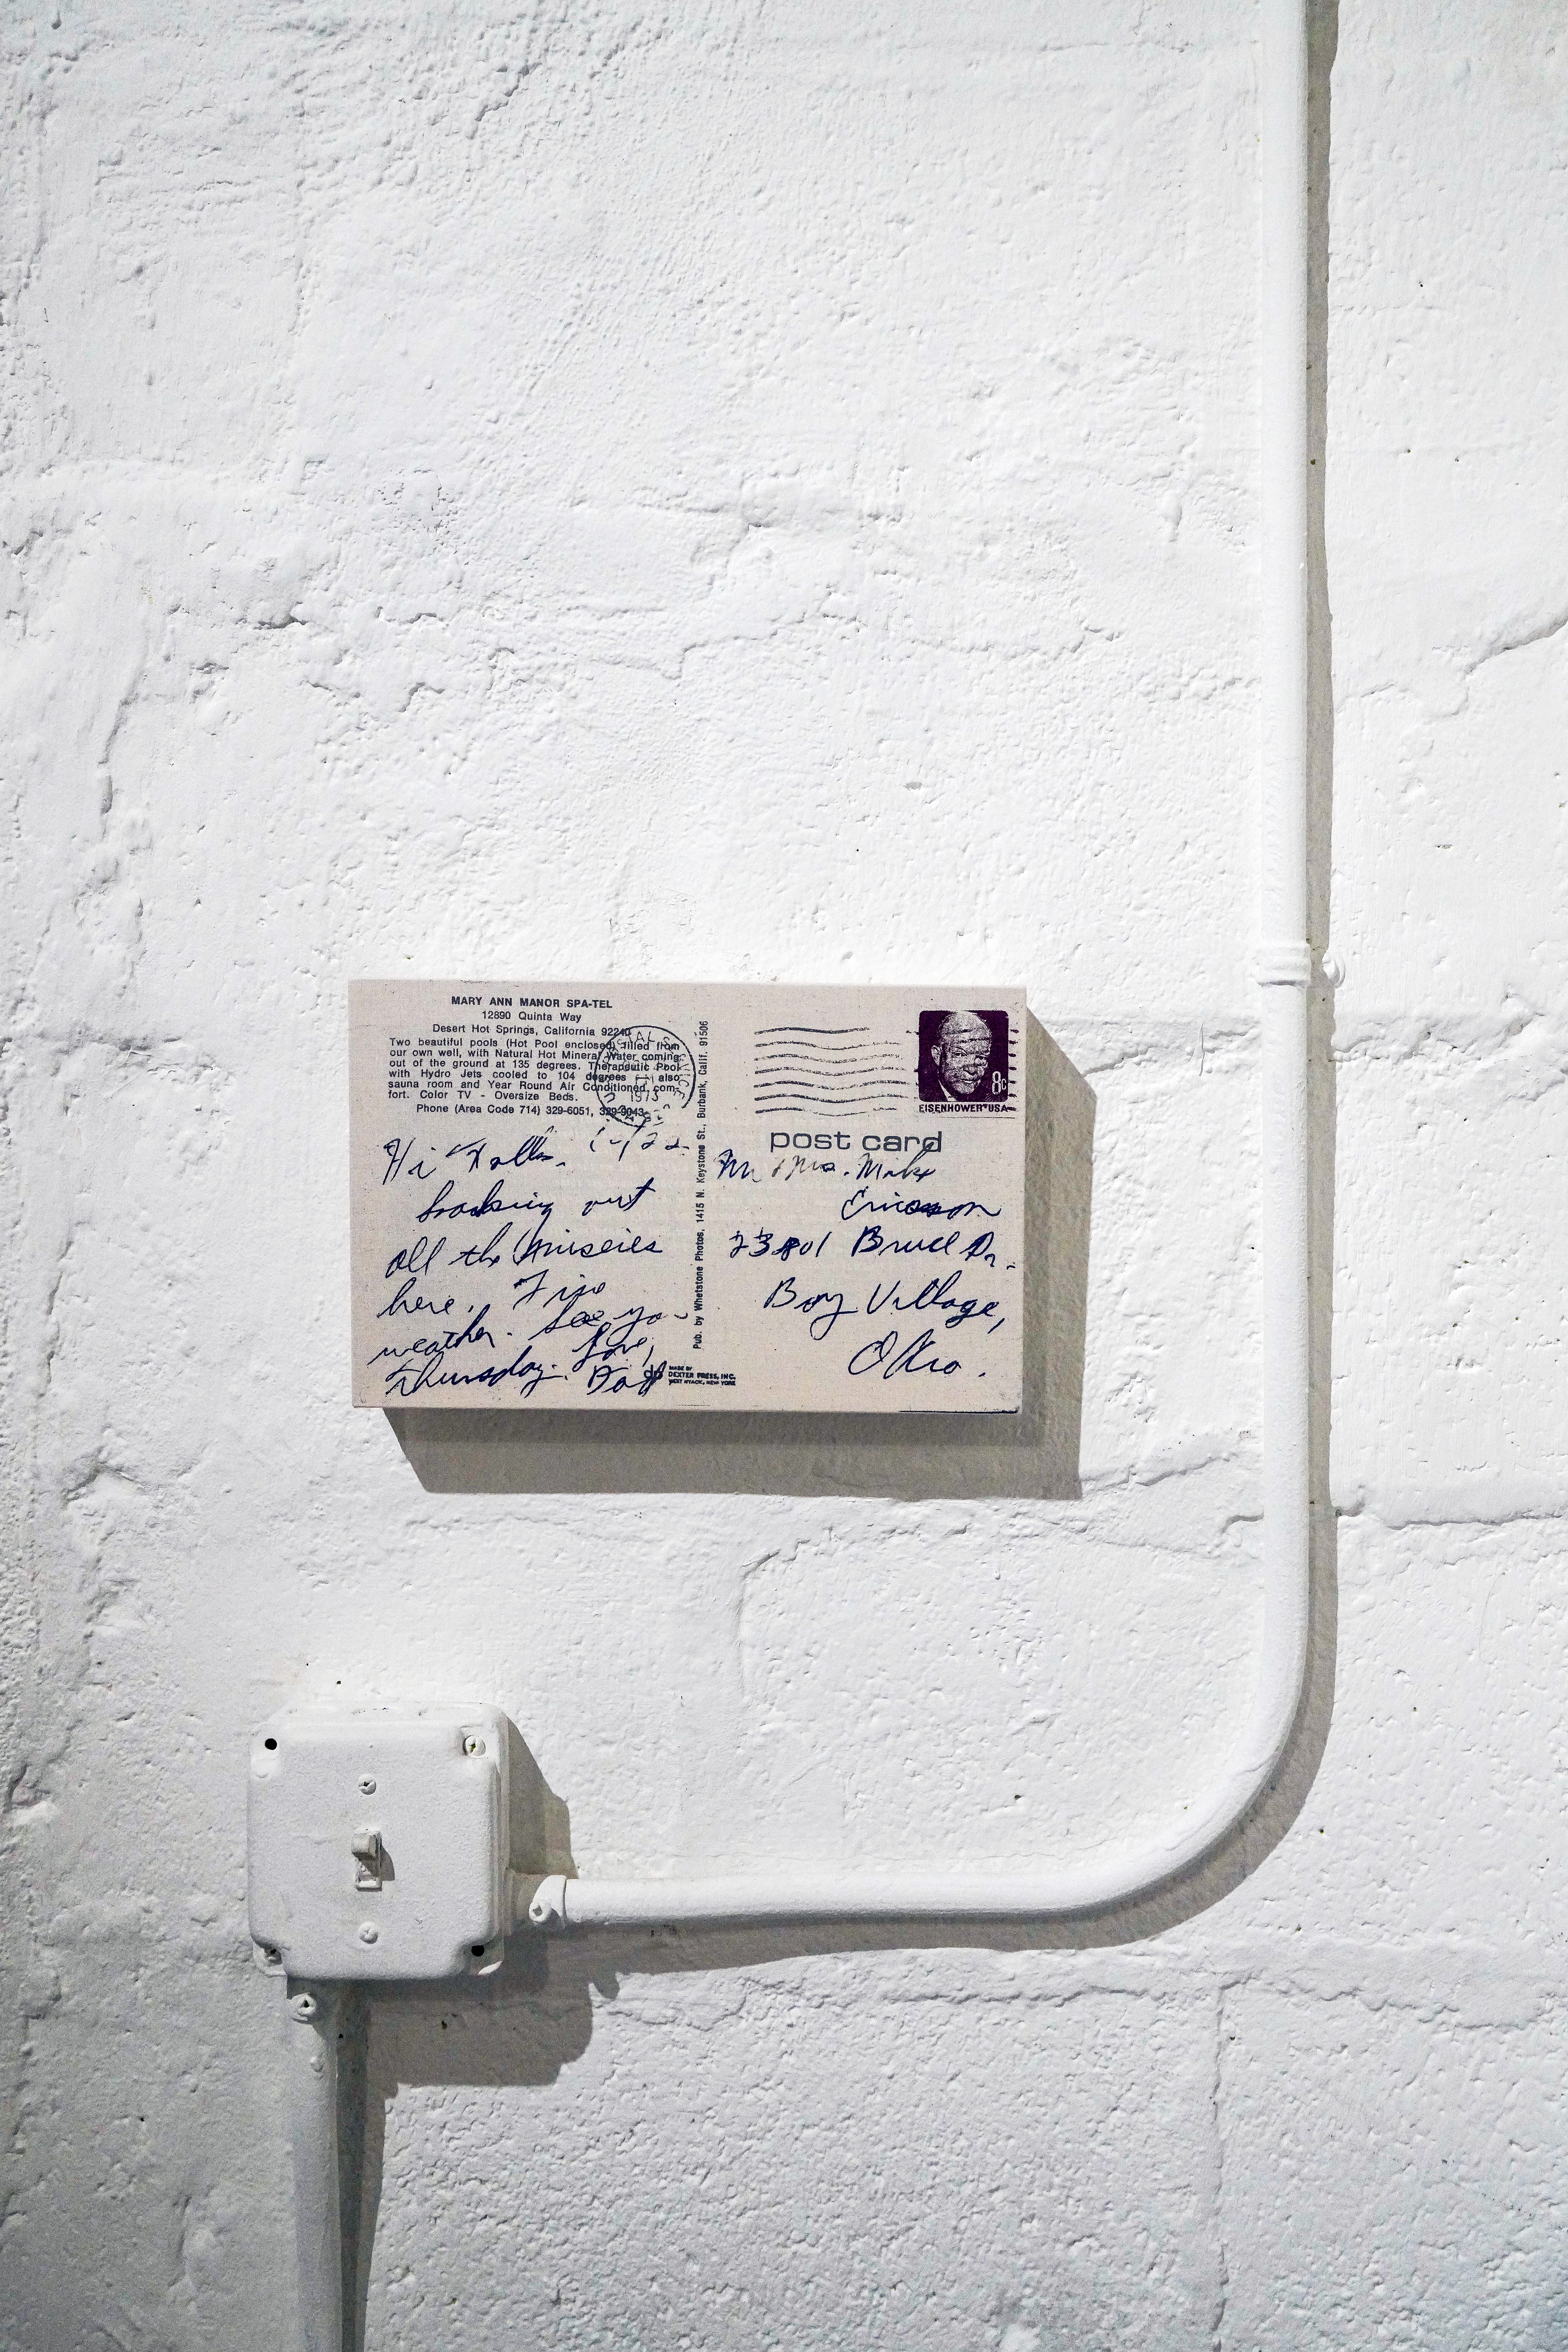 MARY ANN MANOR SPA-TEL
12890 Quinta Way
Desert Hot Springs, California 92240
Two beautiful pools (Hot Pool enclosed) filled from
our own well, with Natural Hot Mineral Water coming
out of the ground at 135 degrees. Therapeutic Pool
with Hydro Jets cooled to 104 degrees also
sauna room and Year Round Air Conditioned com-
fort. Color TV - Oversize Beds.
Phone (Area Code 714) 329-6051, 329-9043
1975
Hi Folks.
Soaking out
all the miseries
here. Fine
weather. See you
Thursday. Love,
Dad
Pub. by Whetstone Photos, 1415 N. Keystone St., Burbank, Calif. 91506
MADE BY
DEXTER PRESS, INC.
WEST NYACK, NEW YORK
8c
EISENHOWER·USA
post card
Mr & Mrs. Mike
Ericson
23801 Bruce Dr.
Bay Village,
Ohio.